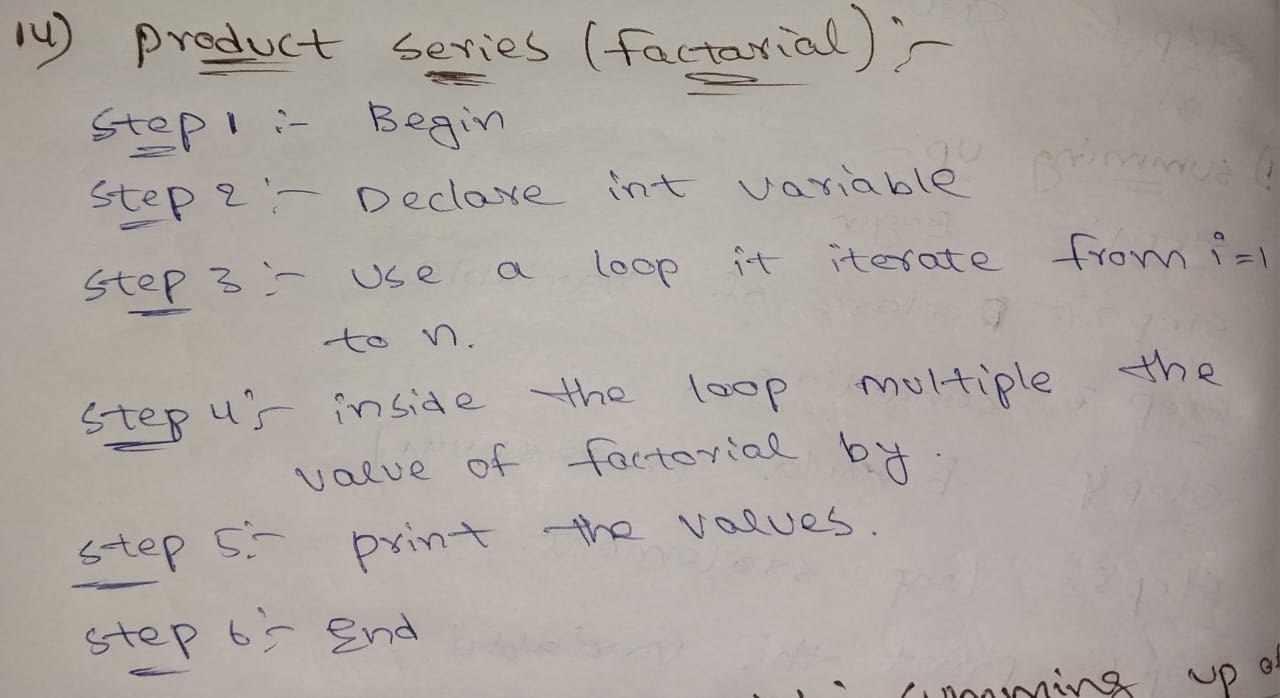 14) product series (factarial) :-
step 1 :- Begin
step 2 :- Declare int variable
step 3 :- use a loop it iterate from i=1
to n.
step 4 :- inside the loop multiple the
value of factorial by.
step 5 :- print the values.
step 6 :- End
summing up of